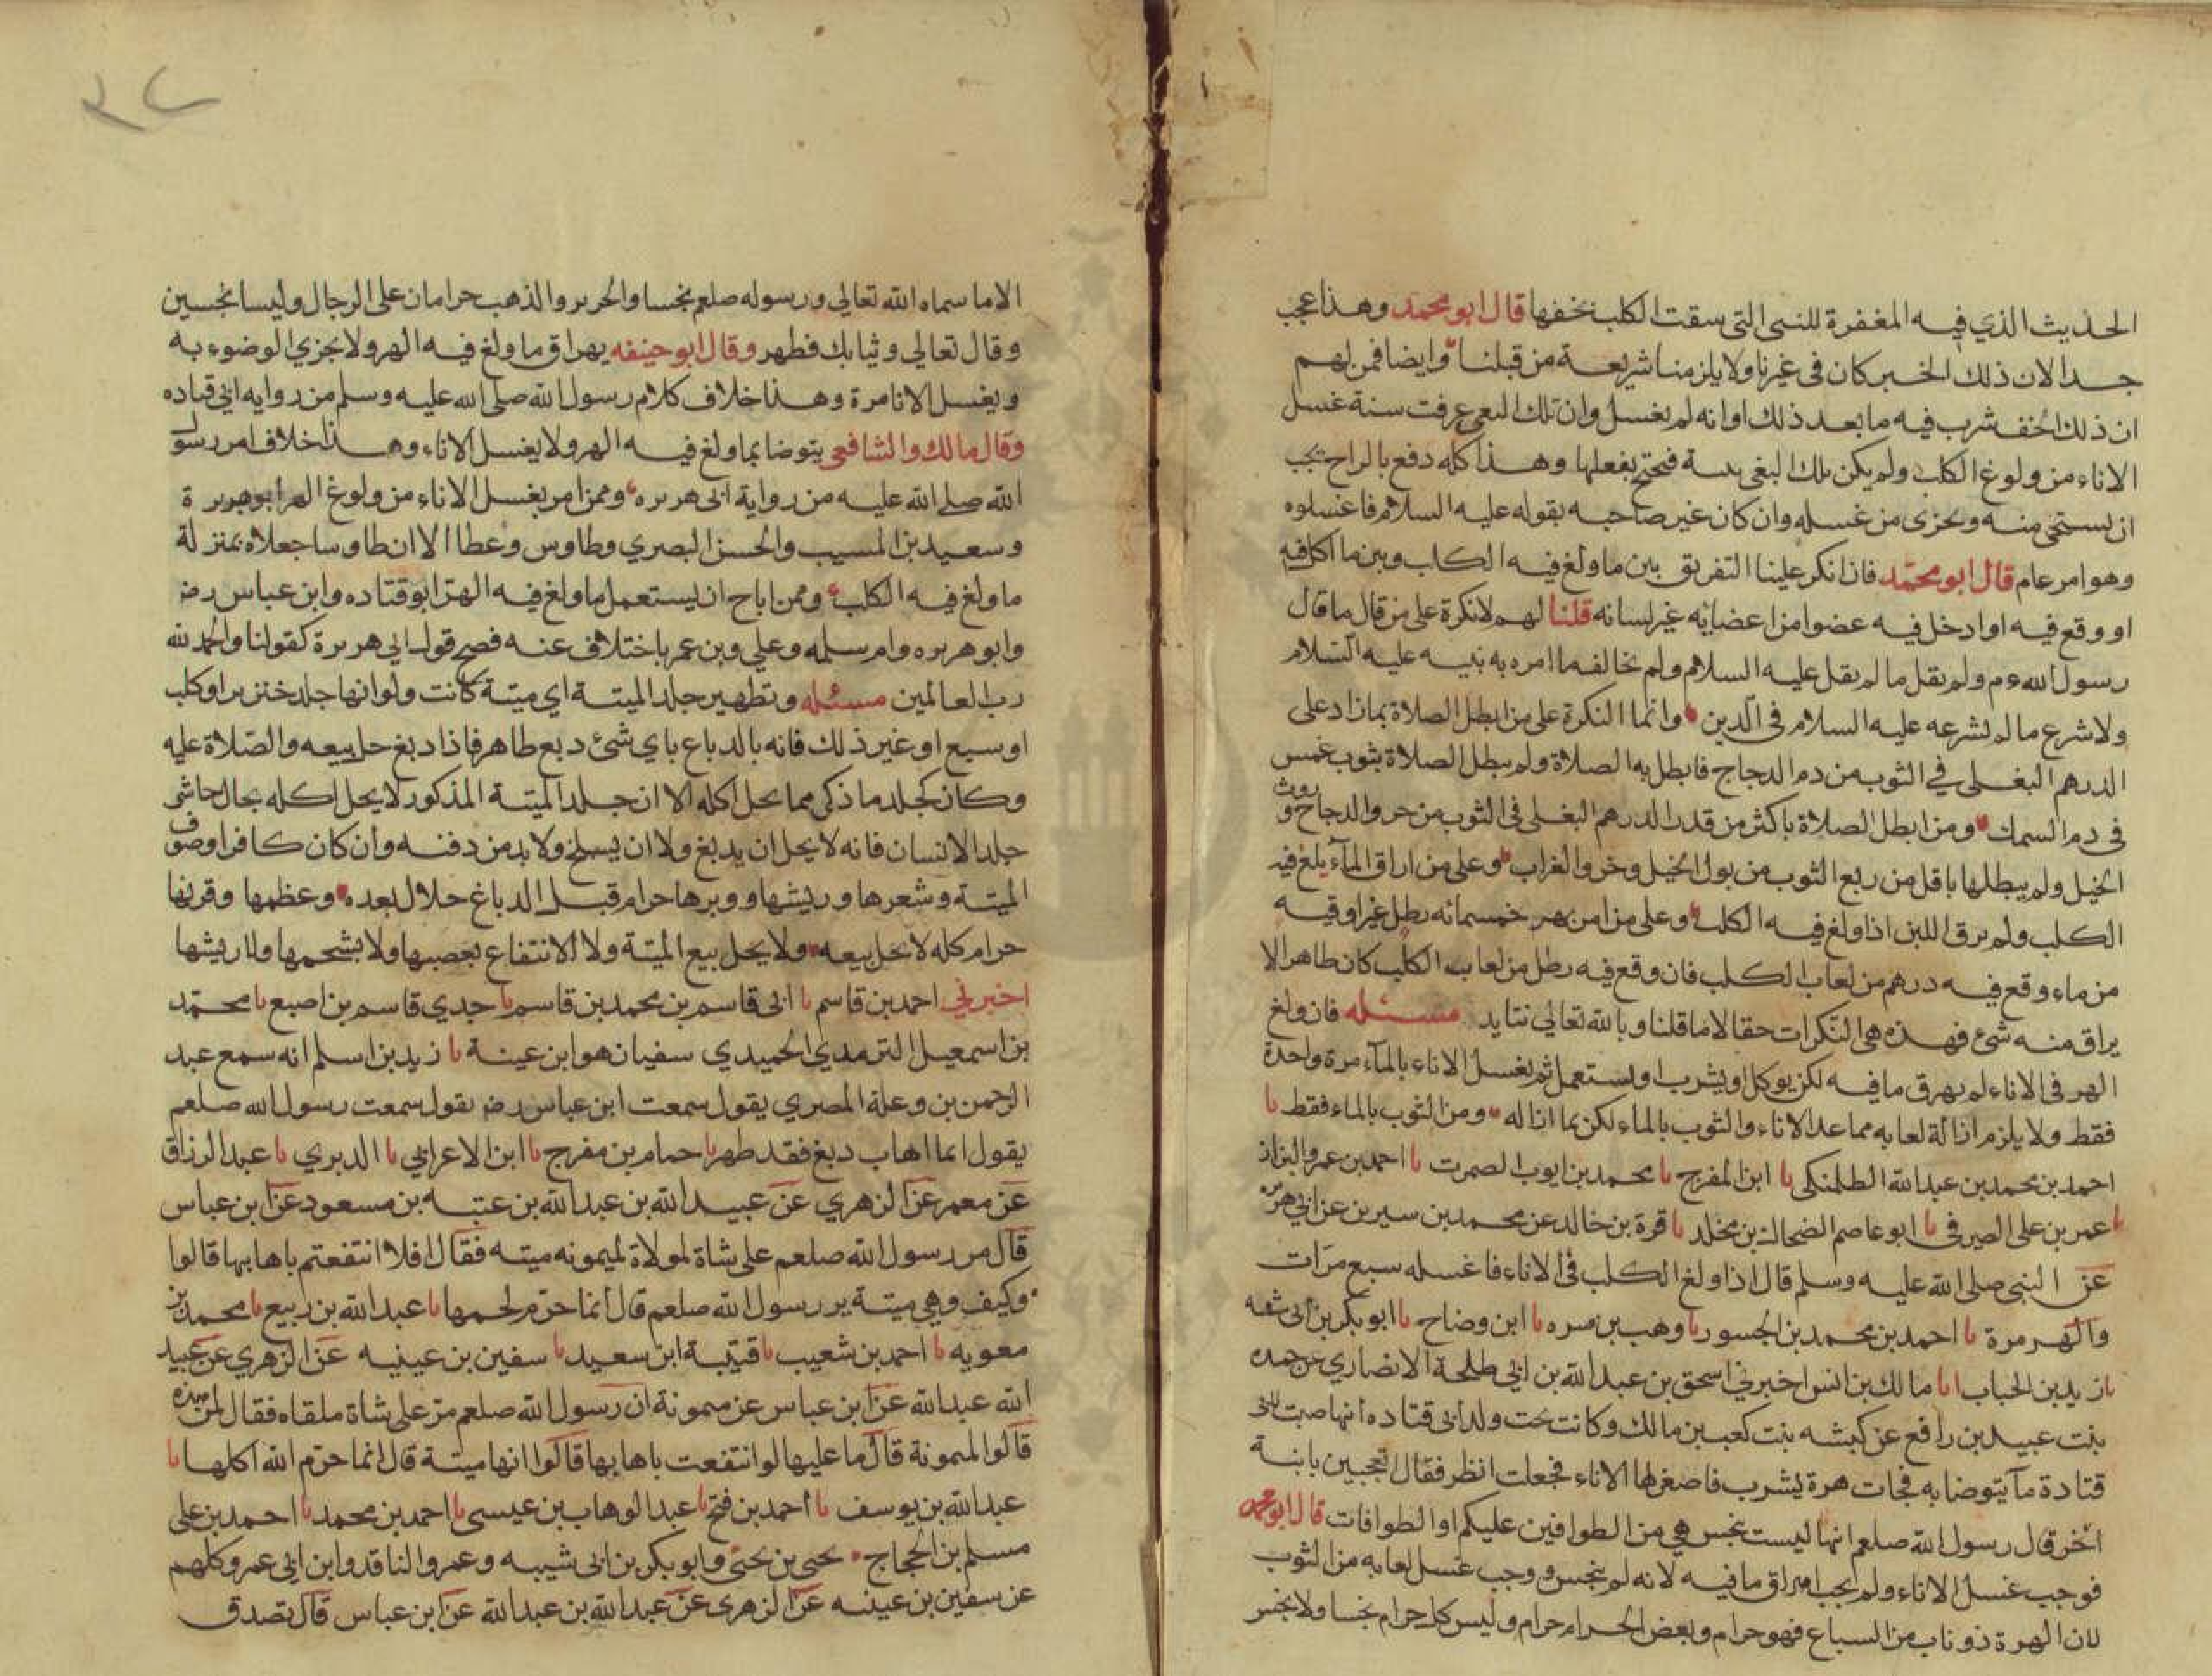 الحديث الذي فيه المغفرة للبغي التي سقت الكلب بخفها قال ابو محمد وهذا عجب
جدا لان ذلك الخبر كان في غيرنا ولا يلزمنا شريعة من قبلنا وايضا فمن لهم
ان ذلك الخف شرب فيه ما بعد ذلك او انه لم يغسل وان تلك البغي عرفت سنة غسل
الاناء من ولوغ الكلب ولم يكن تلك البغي نبية فيحتج بفعلها وهذا كله دفع بالراح يجب
ان يستحي منه ويجزى من غسله وان كان غير صاحبه بقوله عليه السلام فاغسلوه
وهو امر عام قال ابو محمد فان انكر علينا التفريق بين ما ولغ فيه الكلب وبين ما اكل فيه
او وقع فيه او ادخل فيه عضوا من اعضائه غير لسانه قلنا لهم لا نكرة على من قال ما قال
رسول الله عم ولم يقل ما لم يقل عليه السلام ولم يخالف ما امره به نبيه عليه السلام
ولا شرع ما لم يشرعه عليه السلام في الدين وانما النكرة على من ابطل الصلاة بما زاد على
الدرهم البغلي في الثوب من دم الدجاج فابطل به الصلاة ولم يبطل الصلاة بثوب غمس
في دم السمك ومن ابطل الصلاة باكثر من قدر الدرهم البغلي في الثوب من خرو الدجاج وروث
الخيل ولم يبطلها باقل من ربع الثوب من بول الخيل وخرو الغراب وعلى من اراق الماء يلغ فيه
الكلب ولم يرق اللبن اذا ولغ فيه الكلب وعلى من امر بهرق خمسمائه رطل غير اوقيه
من ماء وقع فيه درهم من لعاب الكلب فان وقع فيه رطل من لعاب الكلب كان طاهرا لا
يراق منه شئ فهذه هي النكرات حقا لا ما قلنا وبالله تعالي نتايد مسئله فان ولغ
الهر في الاناء لم يهرق ما فيه لكن يوكل او يشرب او يستعمل ثم يغسل الاناء بالماء مرة واحدة
فقط ولا يلزم ازالة لعابه مما عدا الاناء والثوب بالماء لكن بما ازاله ومن الثوب بالماء فقط نا
احمد بن محمد بن عبد الله الطلمنكي نا ابن المفرج نا محمد بن ايوب الصموت نا احمد بن عمرو البزار
نا عمر بن على الصيرفي نا ابو عاصم الضحاك بن مخلد نا قرة بن خالد عن محمد بن سيرين عن ابي هريره
عن النبي صلى الله عليه وسلم قال اذا ولغ الكلب في الاناء فاغسله سبع مرات
والهر مرة نا احمد بن محمد بن الجسور نا وهب بن مسره نا ابن وضاح نا ابو بكر بن ابي شيبه
نا زيد بن الحباب انا مالك بن انس اخبرني اسحق بن عبد الله بن ابي طلحة الانصاري عن حميده
بنت عبيد بن رافع عن كبشه بنت كعب بن مالك وكانت تحت ولد ابي قتاده انها صبت لابي
قتادة ماء يتوضا به فجات هرة ليشرب فاصغى لها الاناء فجعلت انظر فقال اتعجبين يا بنة
اخي قال رسول الله صلعم انها ليست بنجس هي من الطوافين عليكم او الطوافات قال ابو محمد
فوجب غسل الاناء ولم يجب اهراق ما فيه لانه لم ينجس ووجب غسل لعابه من الثوب
لان الهرة ذو ناب من السباع فهو حرام وبعض الحرام حرام وليس كل حرام نجسا ولا نجس
٣٧
الا ما سماه الله تعالي ورسوله صلعم نجسا والحرير والذهب حرامان على الرجال وليسا نجسين
وقال تعالي وثيابك فطهر وقال ابو حنيفه يهراق ما ولغ فيه الهر ولا يجزي الوضوء به
ويغسل الانا مرة وهذا خلاف كلام رسول الله صلى الله عليه وسلم من روايه ابي قتاده
وقال مالك والشافعي يتوضا بما ولغ فيه الهر ولا يغسل الاناء وهذا خلاف امر رسول
الله صلى الله عليه من رواية ابي هريره وممن امر بغسل الاناء من ولوغ الهر ابو هريرة
وسعيد بن المسيب والحسن البصري وطاوس وعطا الا ان طاوسا جعلاه بمنزلة
ما ولغ فيه الكلب وممن اباح ان يستعمل ما ولغ فيه الهر ابو قتاده وابن عباس رضـ
وابو هريره وام سلمه وعلي وبن عمر باختلاف عنه فصح قول ابي هريرة كقولنا والحمد لله
رب العالمين مسئله وتطهير جلد الميتة اي ميتة كانت ولو انها جلد خنزير او كلب
او سبع او غير ذلك فانه بالدباغ باي شئ دبغ طاهر فاذا دبغ حل بيعه والصلاة عليه
وكان كجلد ما ذكي مما يحل اكله الا ان جلد الميتة المذكور لا يحل اكله بحال حاشى
جلد الانسان فانه لا يحل ان يدبغ ولا ان يسلخ ولا بد من دفنه وان كان كافرا وصوف
الميتة وشعرها وريشها ووبرها حرام قبل الدباغ حلال بعده وعظمها وقرنها
حرام كله لا يحل بيعه ولا يحل بيع الميتة ولا الانتفاع بعصبها ولا بشحمها ولا ريشها
اخبرني احمد بن قاسم نا ابي قاسم بن محمد بن قاسم نا جدي قاسم بن اصبغ نا محمد
بن اسمعيل الترمدي الحميدي سفيان هو ابن عينة نا زيد بن اسلم انه سمع عبد
الرحمن بن وعلة المصري يقول سمعت ابن عباس رضـ يقول سمعت رسول الله صلعم
يقول ايما اهاب دبغ فقد طهر نا حمام بن مفرج نا ابن الاعرابي نا الدبري نا عبد الرزاق
عن معمر عن الزهري عن عبيد الله بن عبد الله بن عتبه بن مسعود عن ابن عباس
قال مر رسول الله صلعم على شاة لمولاة لميمونه ميته فقال افلا انتفعتم باهابها قالوا
وكيف وهي ميتة ير رسول الله صلعم قال انما حرم لحمها نا عبد الله بن ربيع نا محمد بن
معويه نا احمد بن شعيب نا قتيبة ابن سعيد نا سفين بن عيينه عن الزهري عن عبيد
الله عبد الله عن ابن عباس عن ميمونة ان رسول الله صلعم مر على شاة ملقاه فقال لمن هذه
قالوا لميمونة قال ما عليها لو انتفعت باهابها قالوا انها ميتة قال انما حرم الله اكلها نا
عبد الله بن يوسف نا احمد بن فتح نا عبد الوهاب بن عيسى نا احمد بن محمد نا احمد بن على
مسلم بن الحجاج يحيى بن يحيى وابو بكر بن ابي شيبه وعمرو الناقد وابن ابي عمر وكلهم
عن سفين بن عينه عن الزهري عن عبد الله بن عبد الله عن ابن عباس قال تصدق